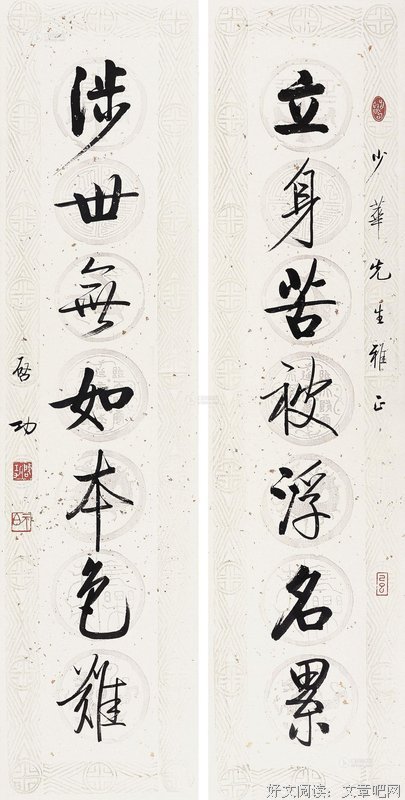 少華先生雅正
立身苦被浮名累
涉世無如本色難
啓功
好文阅读：文章吧网